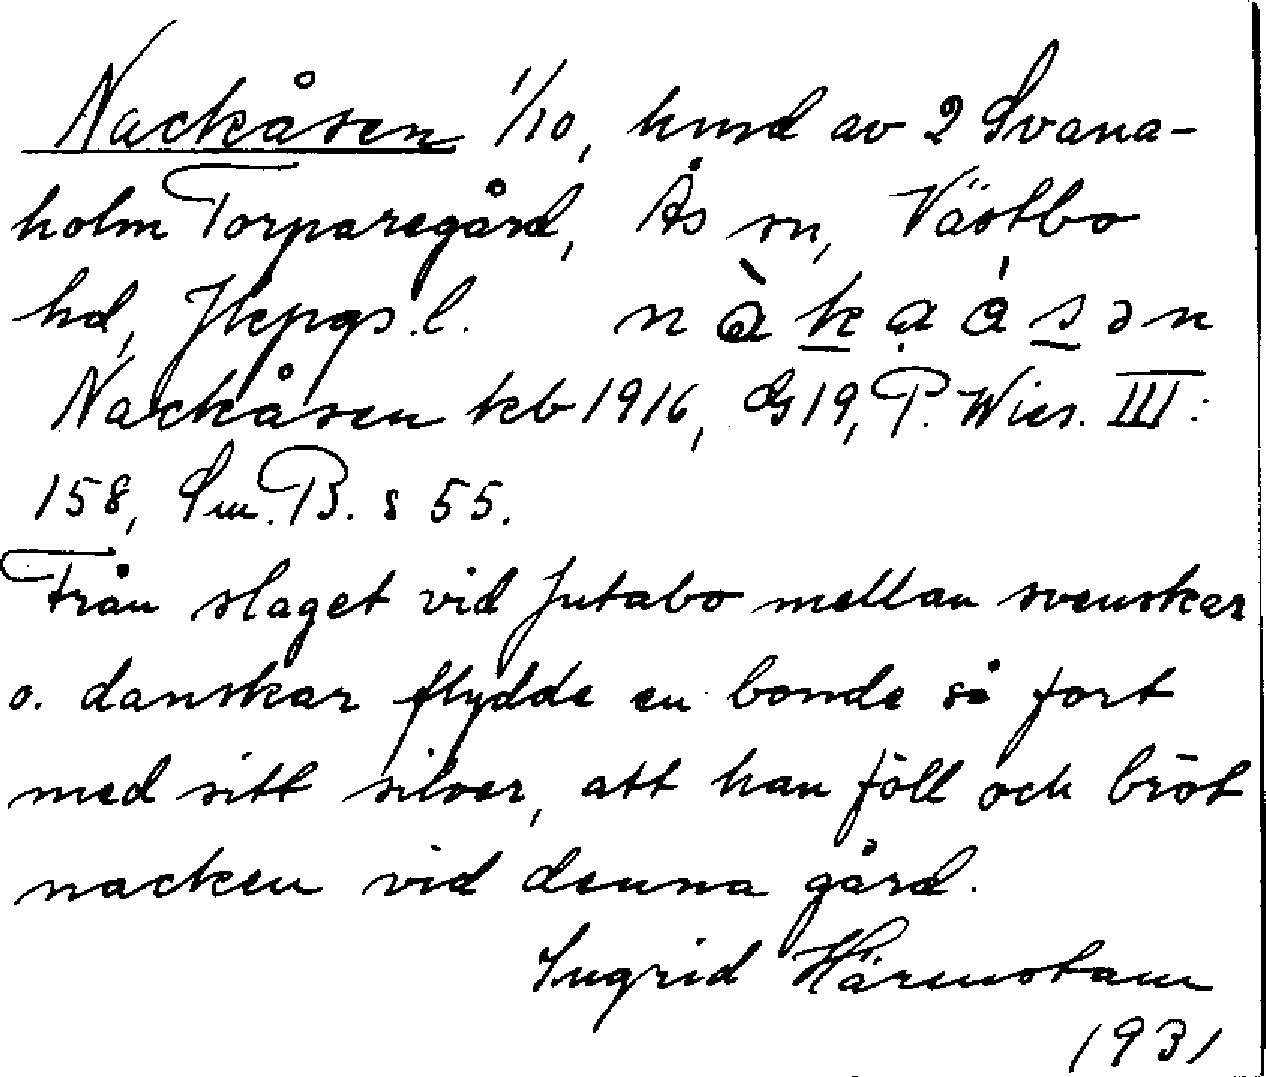 Nackåsen 1/10, hmd av 2 Svana-
holm Torparegård, Ås sn, Västbo
hd, Jkpgs. l. nàkaásən
Nackåsen kb 1916, G19, P. Wies. III:
158, Sm. B. s 55.
Från slaget vid Jutabo mellan svenskar
o. danskar flydde en bonde så fort
med sitt silver, att han föll och bröt
nacken vid denna gård.
Ingrid Härenstam
1931